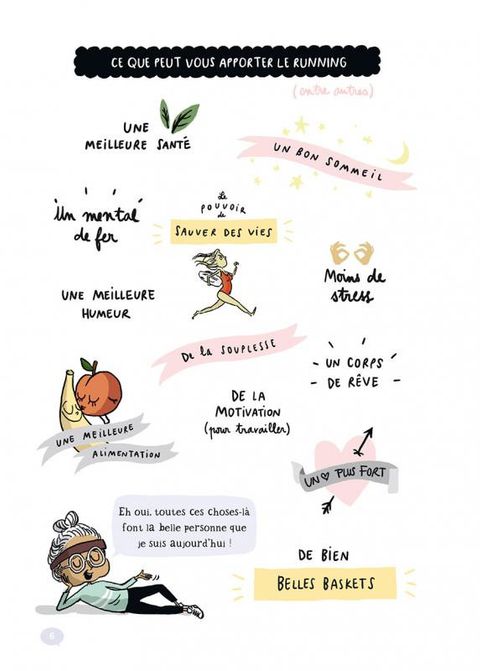 CE QUE PEUT VOUS APPORTER LE RUNNING
(entre autres)
UNE
MEILLEURE SANTÉ
UN BON SOMMEIL
Un mental
de fer
Le
POUVOIR
de
SAUVER DES VIES
Moins de
stress
UNE MEILLEURE
HUMEUR
De la SOUPLESSE
UN CORPS
DE RÊVE
DE LA
MOTIVATION
(pour travailler)
UNE MEILLEURE
ALIMENTATION
UN ♡ PLUS FORT
Eh oui, toutes ces choses-là
font la belle personne que
je suis aujourd'hui !
DE BIEN
BELLES BASKETS
6